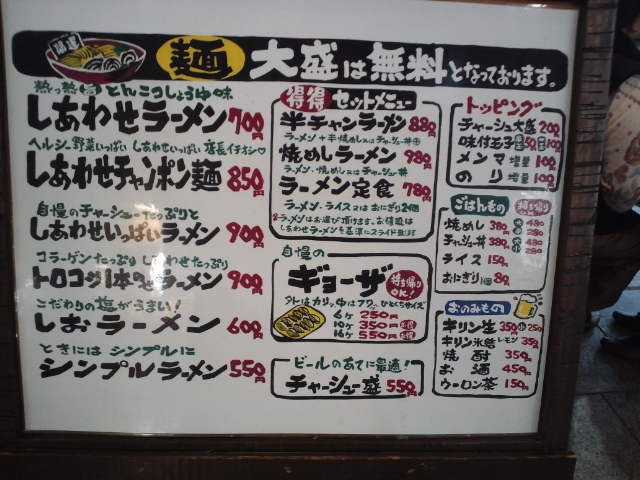 麺 大盛は無料となっております。
熱っ熱 とんこつしょうゆ味
しあわせラーメン 700円
ヘルシー野菜いっぱい しあわせいっぱい 店長イチオシ♡
しあわせチャンポン麺 850円
自慢のチャーシューたっぷりと
しあわせいっぱいラーメン 900円
コラーゲンたっぷり しあわせたっぷり
トロコツ1本 ラーメン 900円
こだわりの塩がうまい!
しおラーメン 600円
ときには シンプルに
シンプルラーメン 550円
得得 セットメニュー
半チャンラーメン 880円
ラーメン+半焼めし又はチャーシュー丼
焼めしラーメン 980円
ラーメン・焼めし又はチャーシュー丼
ラーメン定食 780円
ラーメン・ライス又はおにぎり2個
ラーメンはお選び頂けます。お値段は
しあわせラーメンを基準にスライド致します
自慢の
ギョーザ 持ち帰りOK!
外はカリッ、中はフワッ ひとくちサイズ
6ケ 250円
10ケ 350円
16ケ 550円
ビールのあてに最適!
チャーシュー盛 550円
トッピング
チャーシュー大盛 200円
味付玉子 50円 100円
メンマ 増量 100円
のり 増量 100円
ごはんもの 持ち帰りOK
焼めし 380円 大 480円
チャーシュー丼 380円 大 480円
ライス 150円
おにぎり1個 80円
おのみもの
キリン生 350円 小 250円
キリン氷結 レモン 350円
焼酎 350円
お酒 450円
ウーロン茶 150円